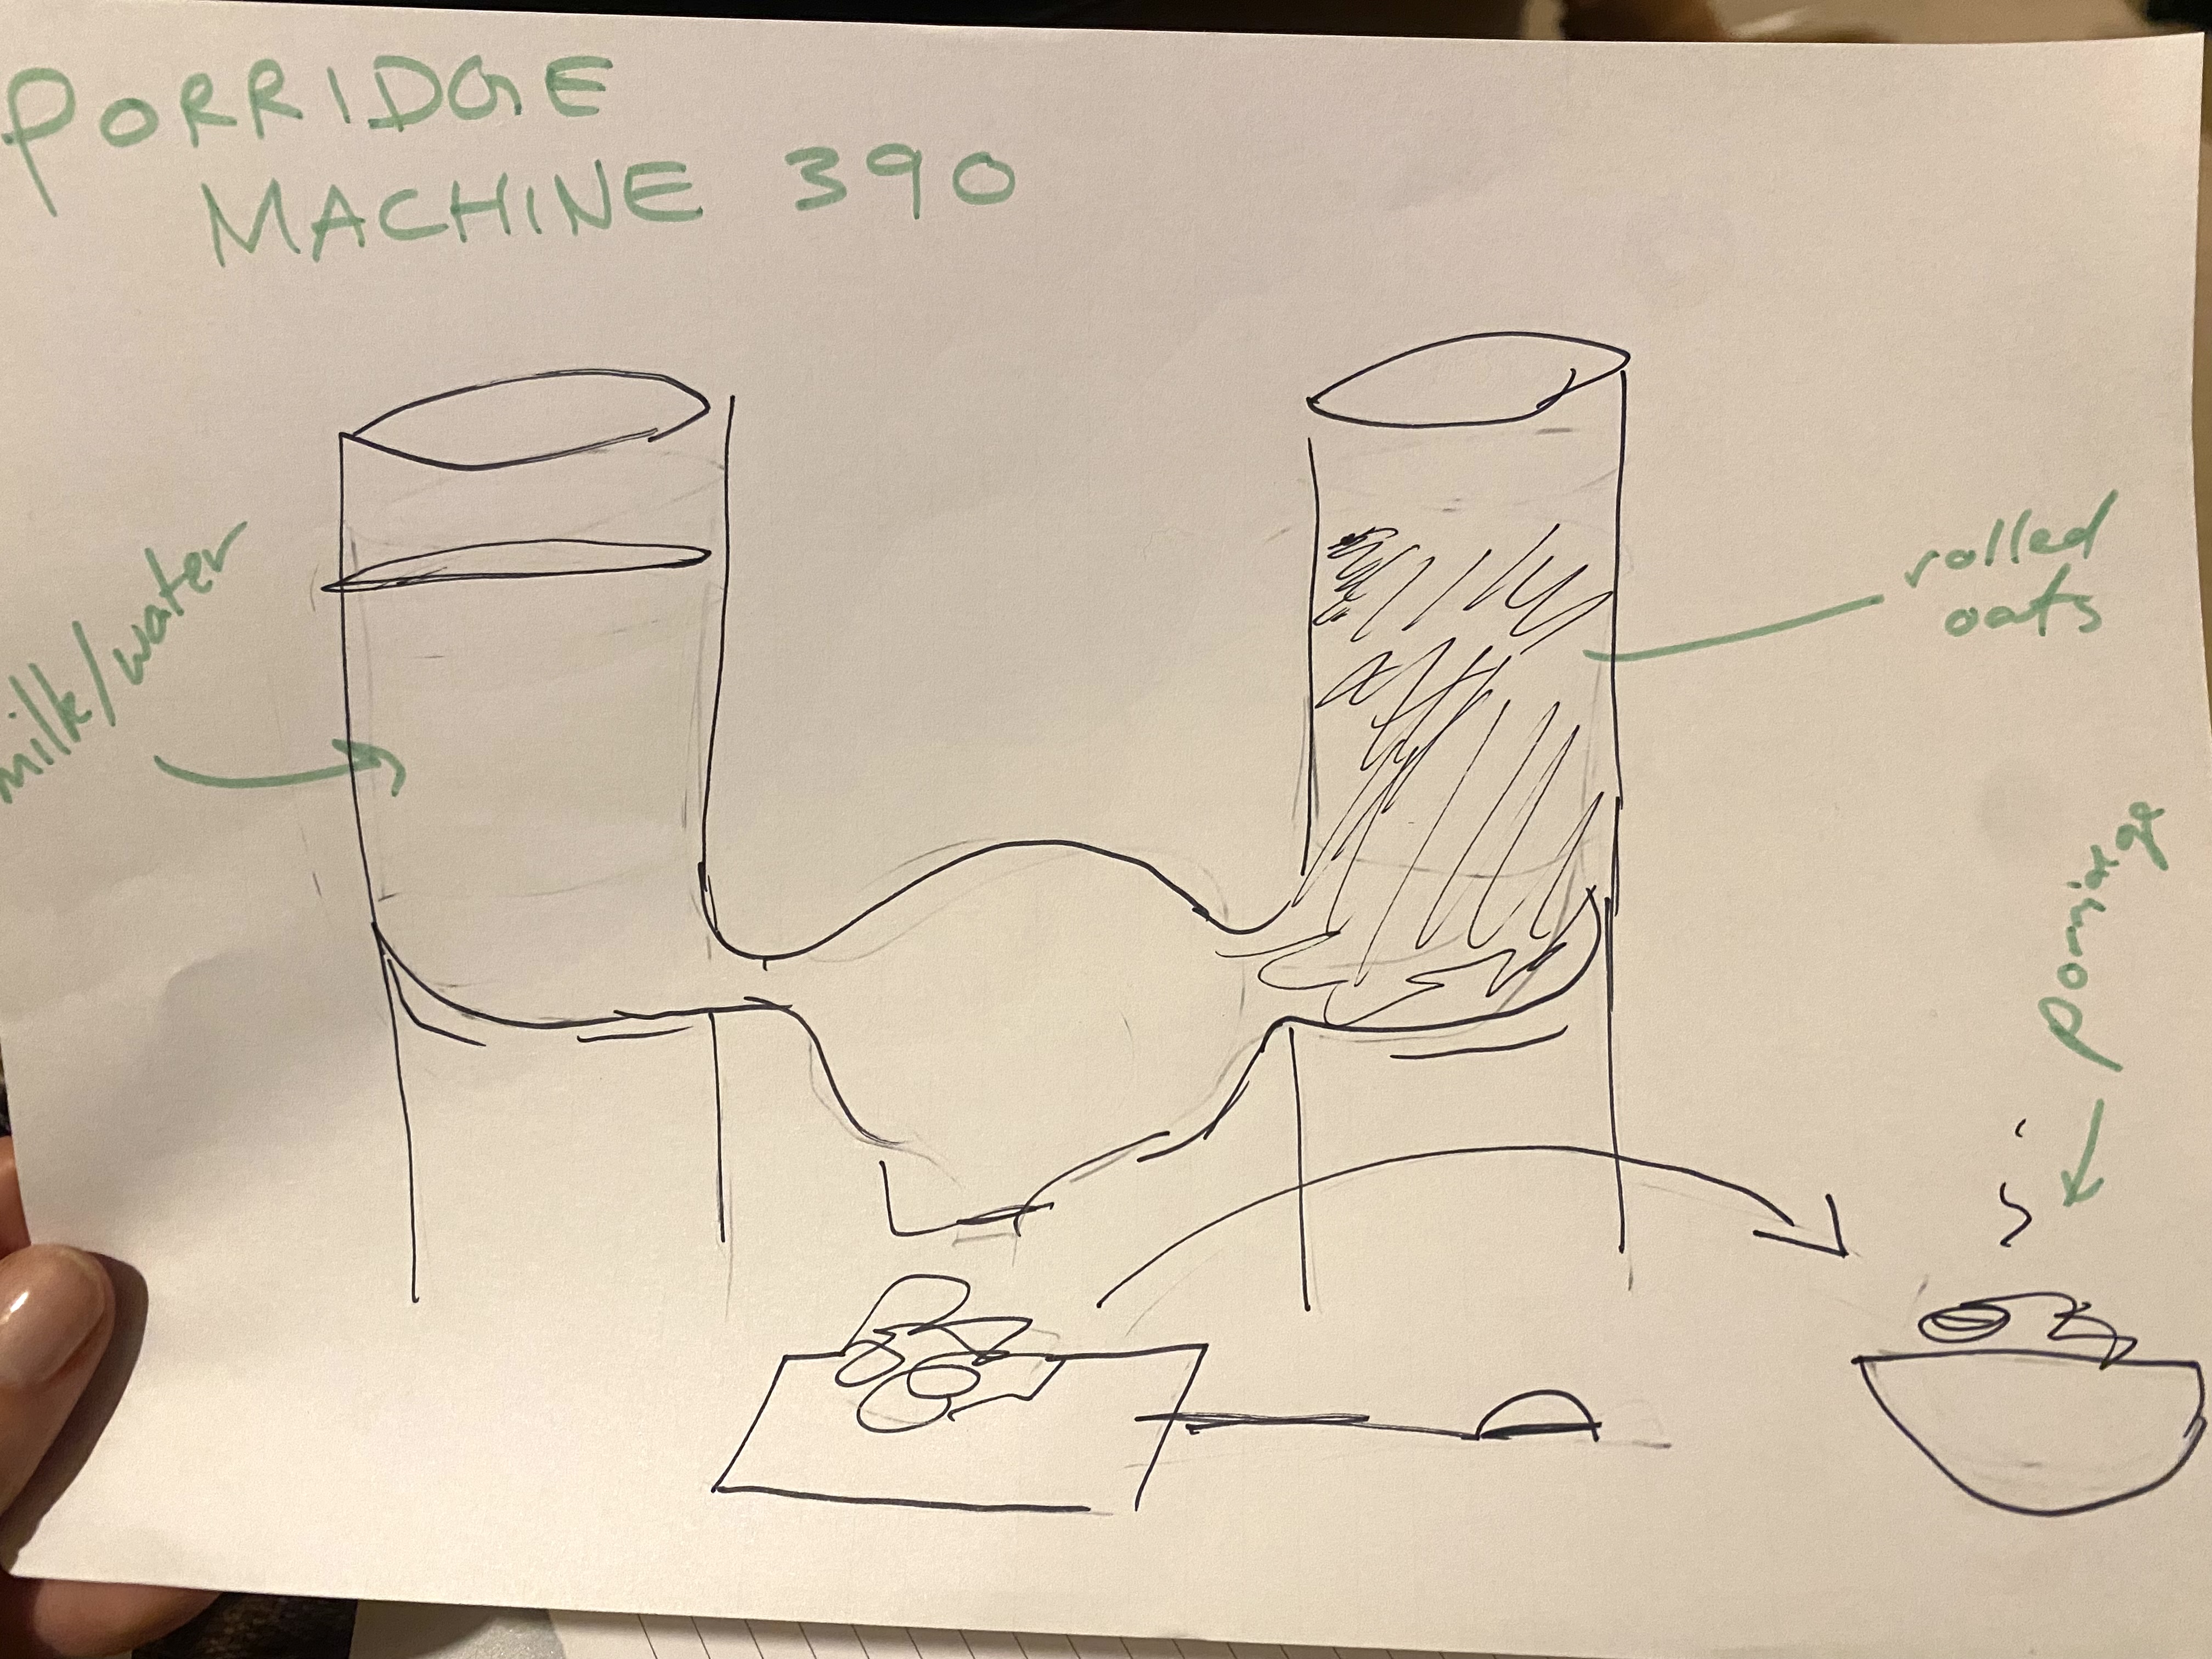 PORRIDGE
MACHINE 390
milk/water
rolled
oats
Porridge